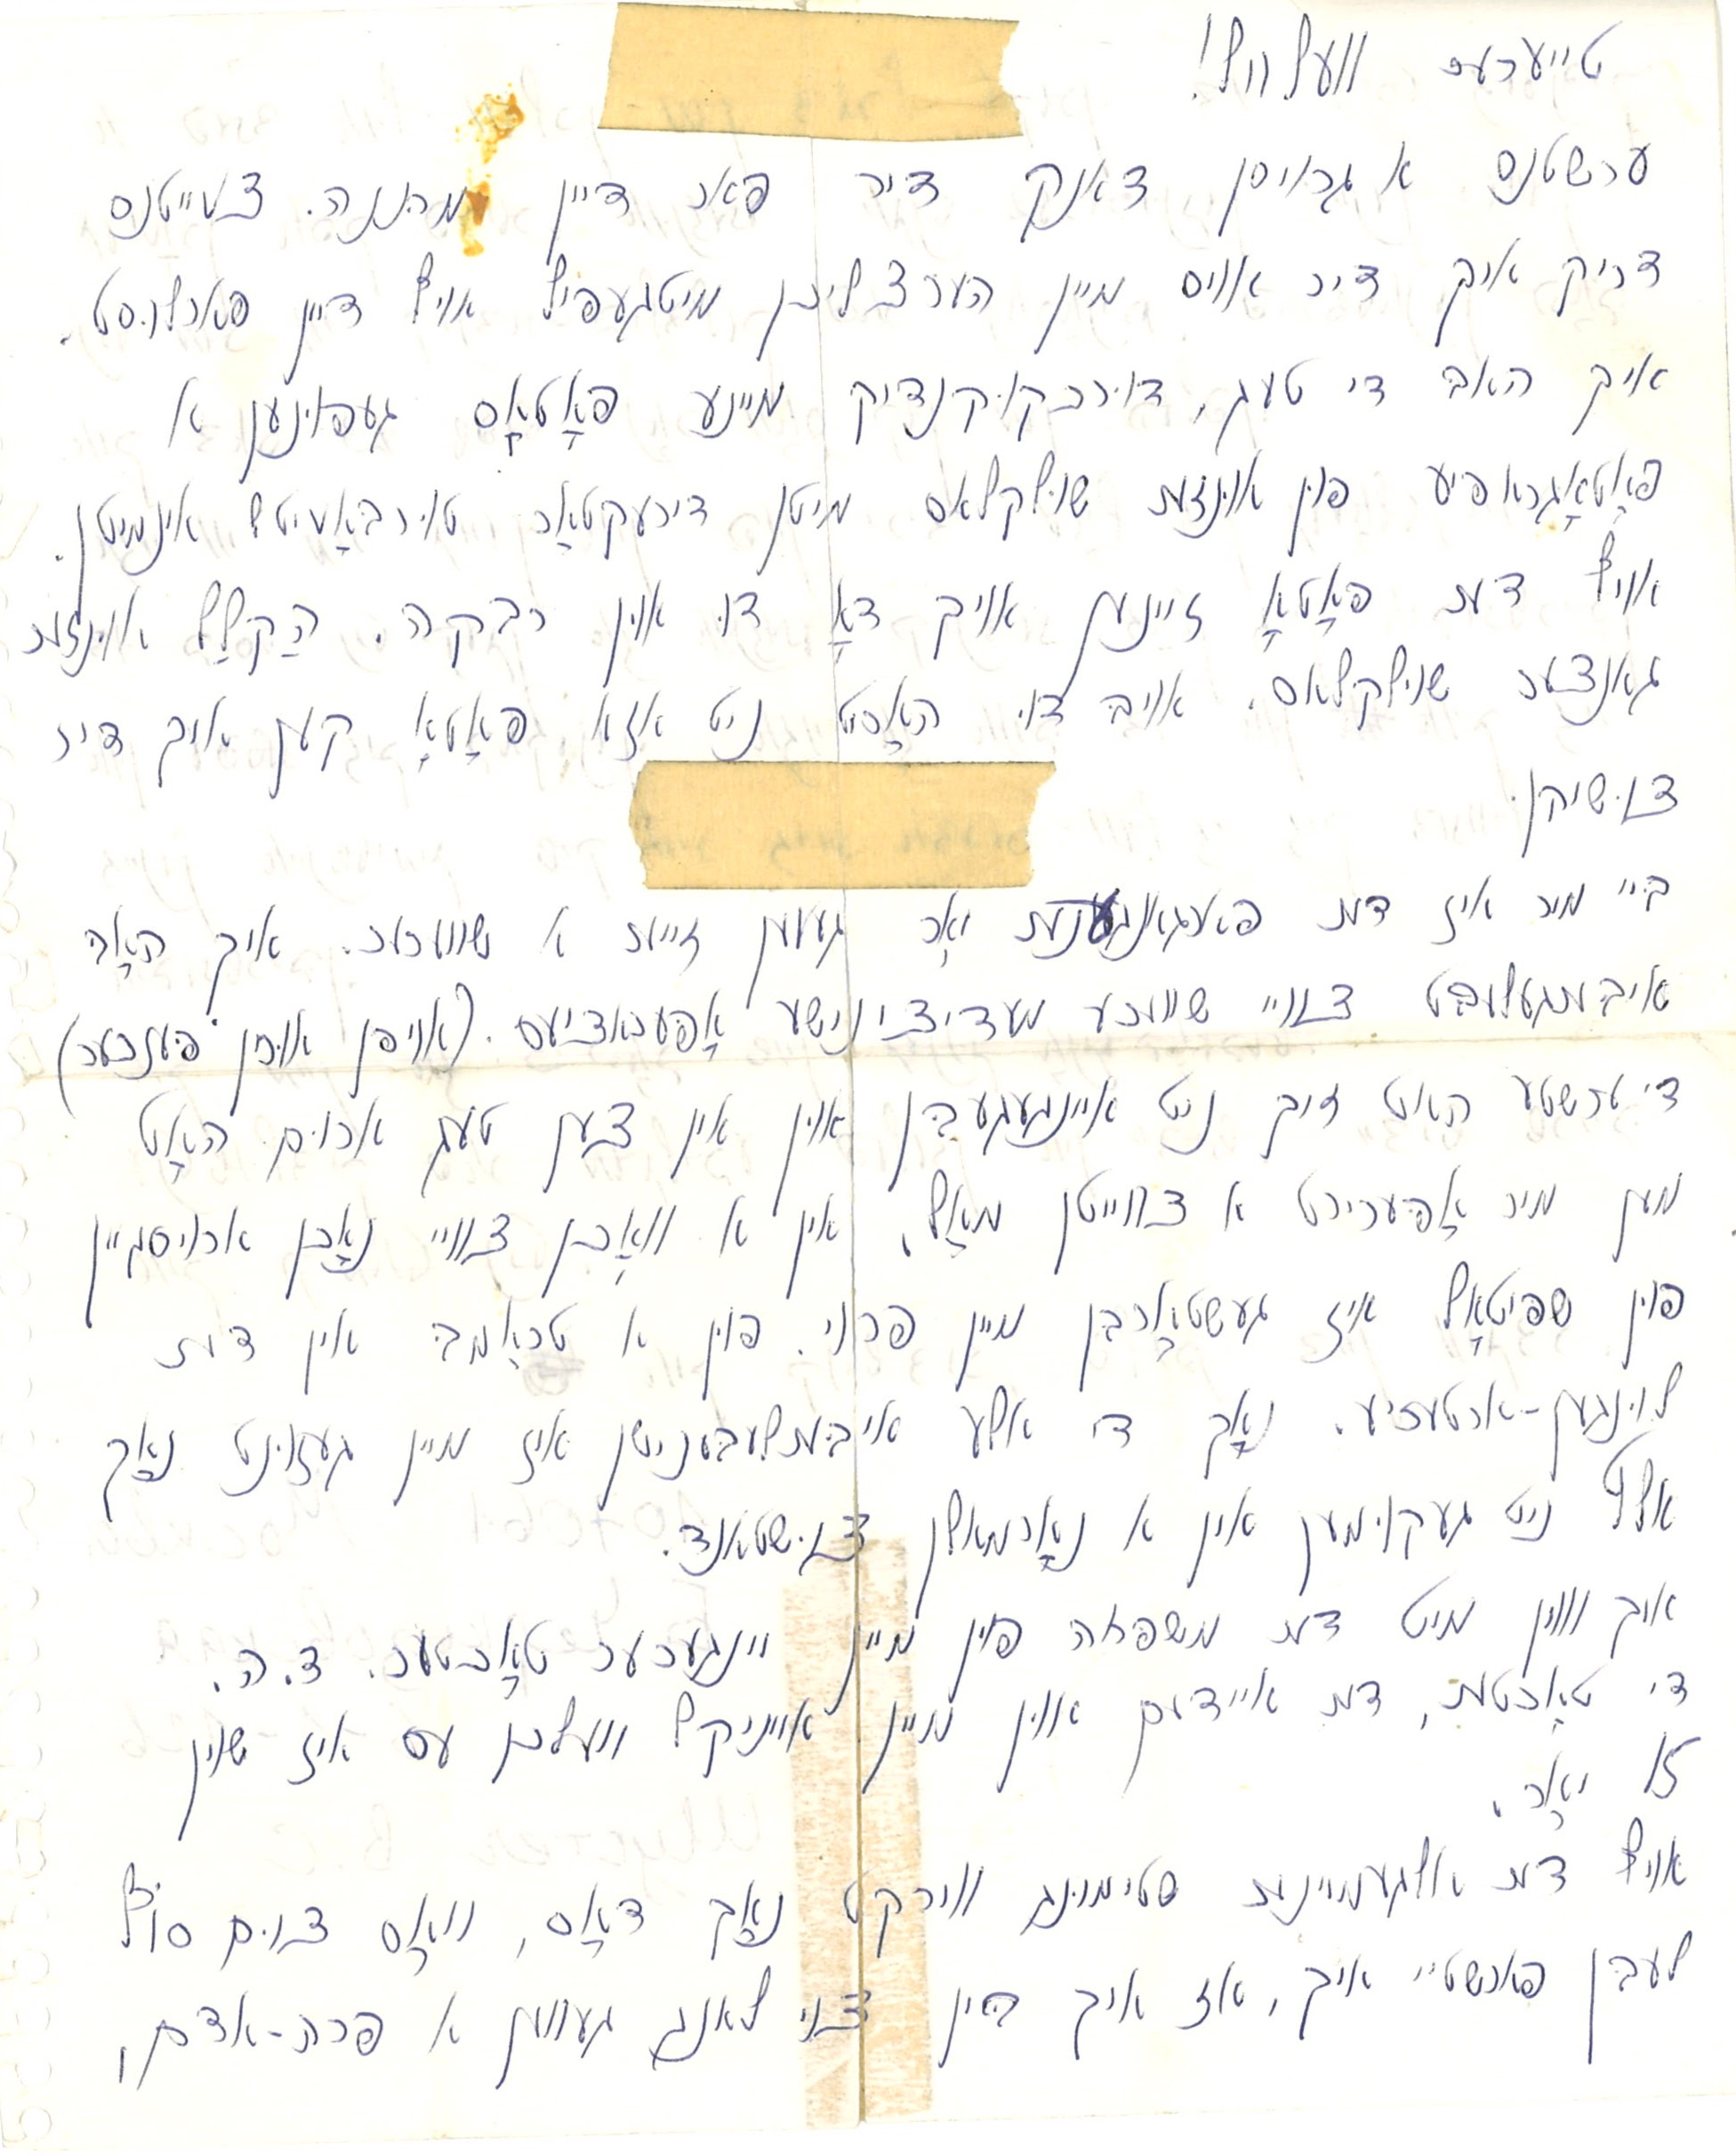 טייערער וועלוול!
ערשטנס א גרויסן דאנק דיר פאר דיין מתנה. צווייטנס
דריק איך דיר אויס מיין הערצליכן מיטגעפיל אויף דיין פארלוסט.
איך האב די טעג, דורכקוקנדיק מיינע פאָטאָס געפונען א
פאָטאָגראפיע פון אונזער שולקלאס מיטן דירעקטאָר טורבאָוויטש אינמיטן.
אויף דער פאָטאָ זיינען אויך דאָ דו און רבקה. הַקלַל אונזער
גאנצער שולקלאס. אויב דו האָסט ניט אזא פאָטאָ קען איך דיר
צושיקן.
ביי מיר איז דער פארגאנגענער יאָר געווען זייער א שווערער. איך האָב
איבערגעלעבט צוויי שווערע מעדיצינישע אָפּעראציעס. (אויפן אורין פּענכער)
די ערשטע האט זיך ניט איינגעגעבן און אין צען טעג ארום האָט
מען מיר אָפּערירט א צווייטן מאָל, אין א וואָכן צוויי נאָכן ארויסגיין
פון שפּיטאָל איז געשטאָרבן מיין פרוי. פון א טראָמב אין דער
לונגען-ארטעריע. נאָך די אלע איבערלעבענישן איז מיין געזונט נאָך
אלץ ניט געקומען אין א נאָרמאלן צושטאנד.
איך וווין מיט דער משפחה פון מיין יינגערער טאָכטער. ד.ה.
די טאָכטער, דער איידעם און מיין אייניקל וועלכן עס איז שוין
יאָר.
אויף דער אלגעמיינער שטימונג ווירקט נאָך דאָס, וואָס צום סוף
לעבן פארשטיי איך, אז איך בין צו לאנג געווען א פרא-אדם,